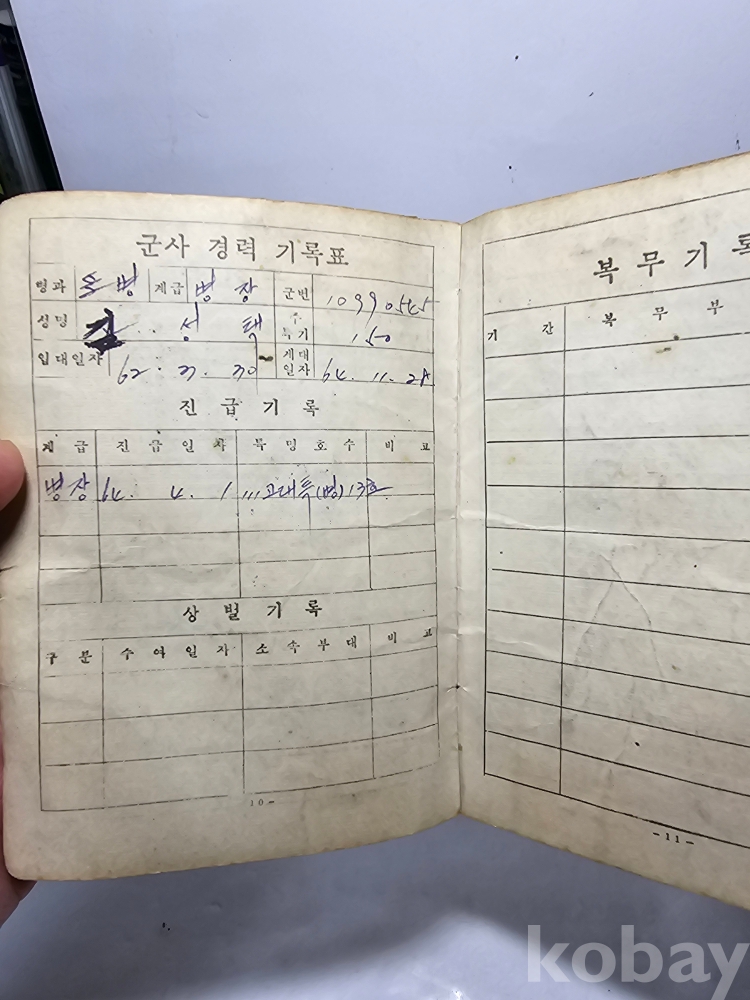 군사 경력 기록표
병과 보병 계급 병장 군번 10990545
성명 김 성 택 주특기 150
입대일자 62. 3. 30 제대일자 64. 11. 28
진급기록
계급 진급일자 특명호수 비고
병장 64. 4. 1 고대특(병)13호
상벌기록
구분 수여일자 소속부대 비고
10-
복무기록
기 간 복 무 부
-11-
kobay